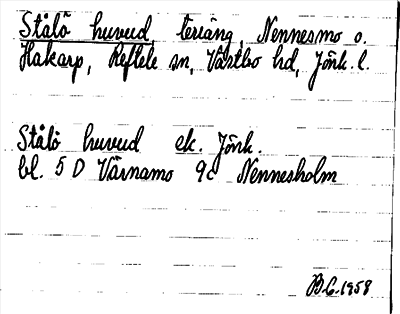 Stålö huvud, teräng, Nennesmo o.
Hakarp, Reftele sn, Västbo hd, Jönk. l.
Stålö huvud ek. Jönk.
bl. 5 D Värnamo 9c Nennesholm
B.G. 1958